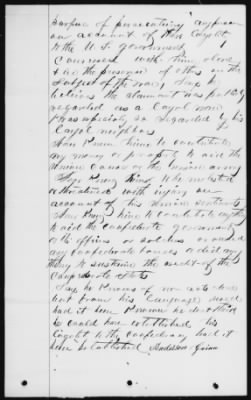 purpose of prosecuting any person
on account of their loyalty
to the U.S. government
Conversed with him alone
& in the presence of others on the
subject of the war, and
believes the claimant was publicly
regarded as a loyal man
& was especially so regarded by his
loyal neighbors
Never knew him to contribute
any money or property to aid the
Union cause or the Union army
Never knew him to be molested
or threatened with injury on
account of his Union sentiments
Never knew him to contribute anything
to aid the confederate government
or its officers or soldiers or
confederate cause or did any
thing to sustain the credit of the
Confederate states
Says he knows of no acts done
but from his language
had it been known he don't think
he could have established his
loyalty to the confederacy had it
been established Madison Guinn